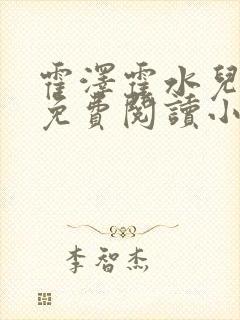 霍澤霍水兒
免費閱讀小
李智杰